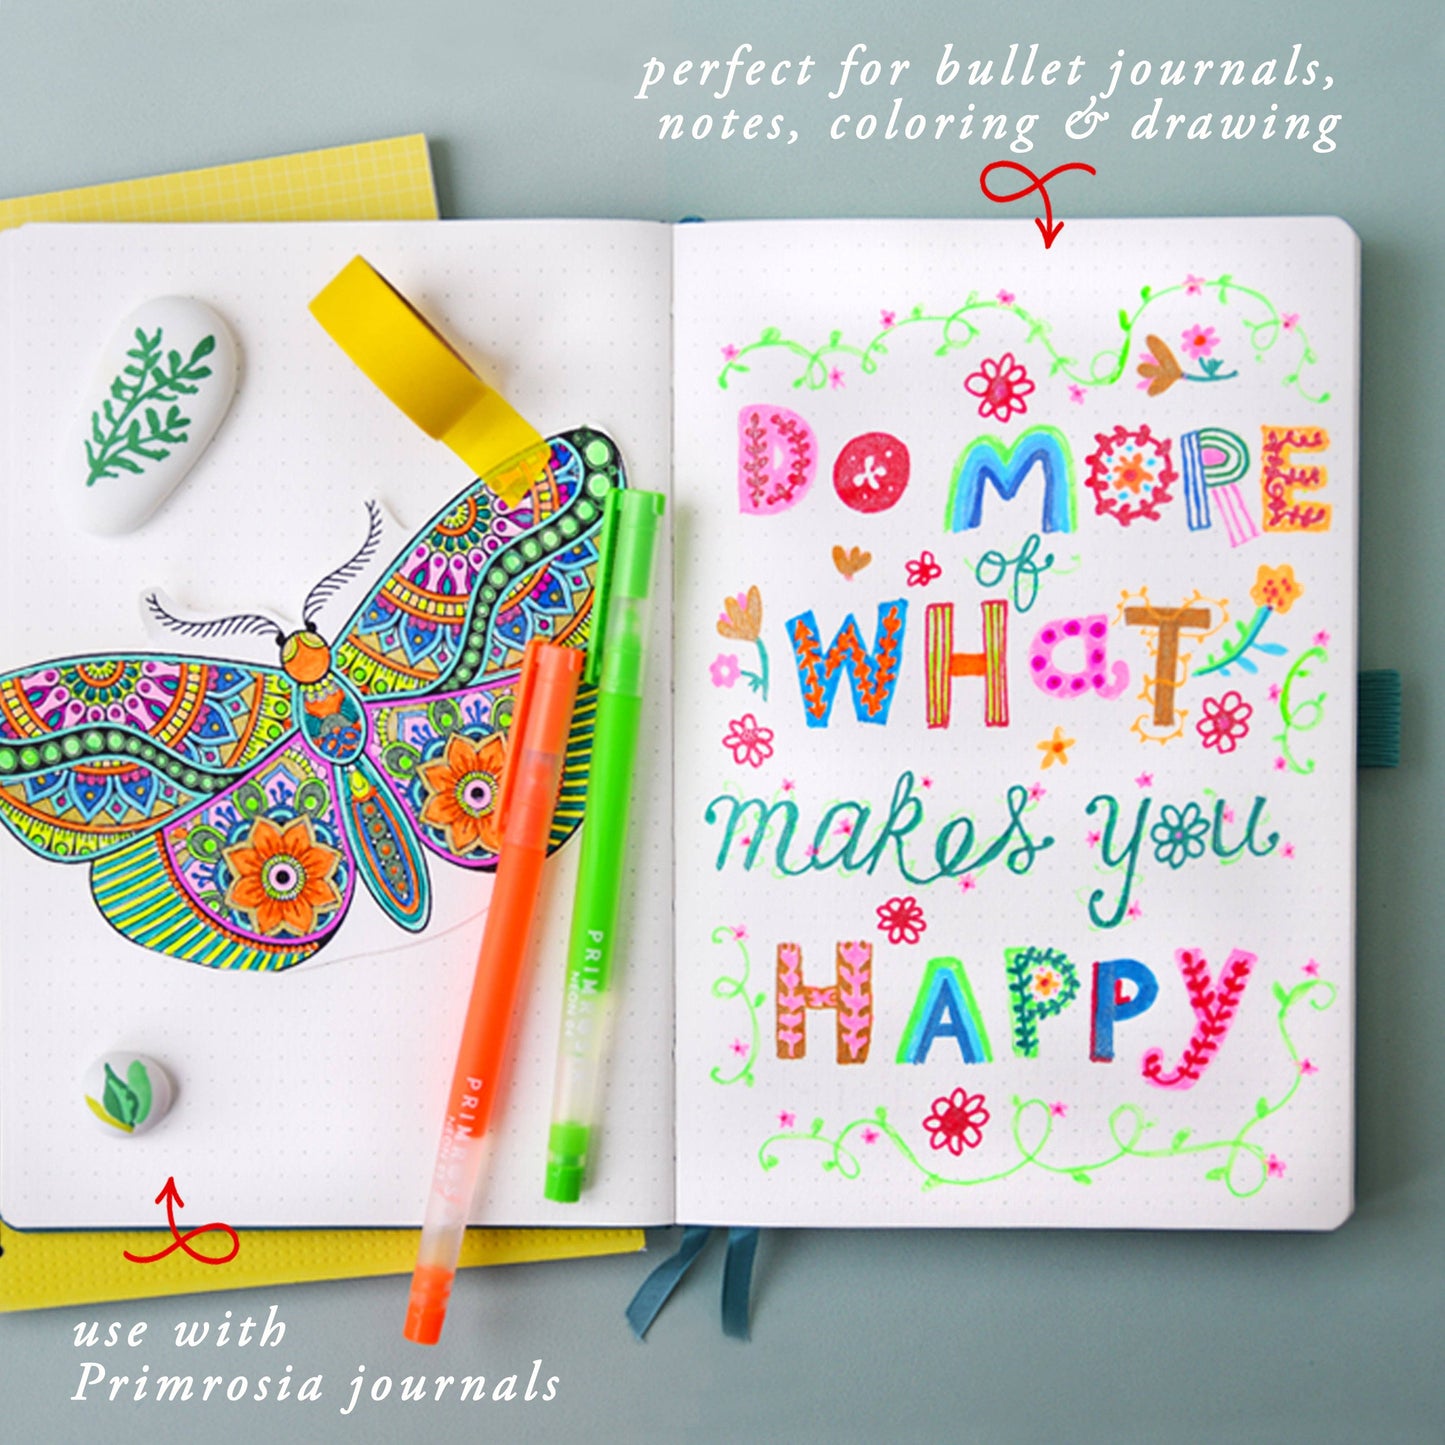 perfect for bullet journals,
notes, coloring & drawing
DO MORE
of
WHaT
makes you
HAPPY
PRIMROSIA
NEON 04
PRIMROSIA
NEON 03
use with
Primrosia journals